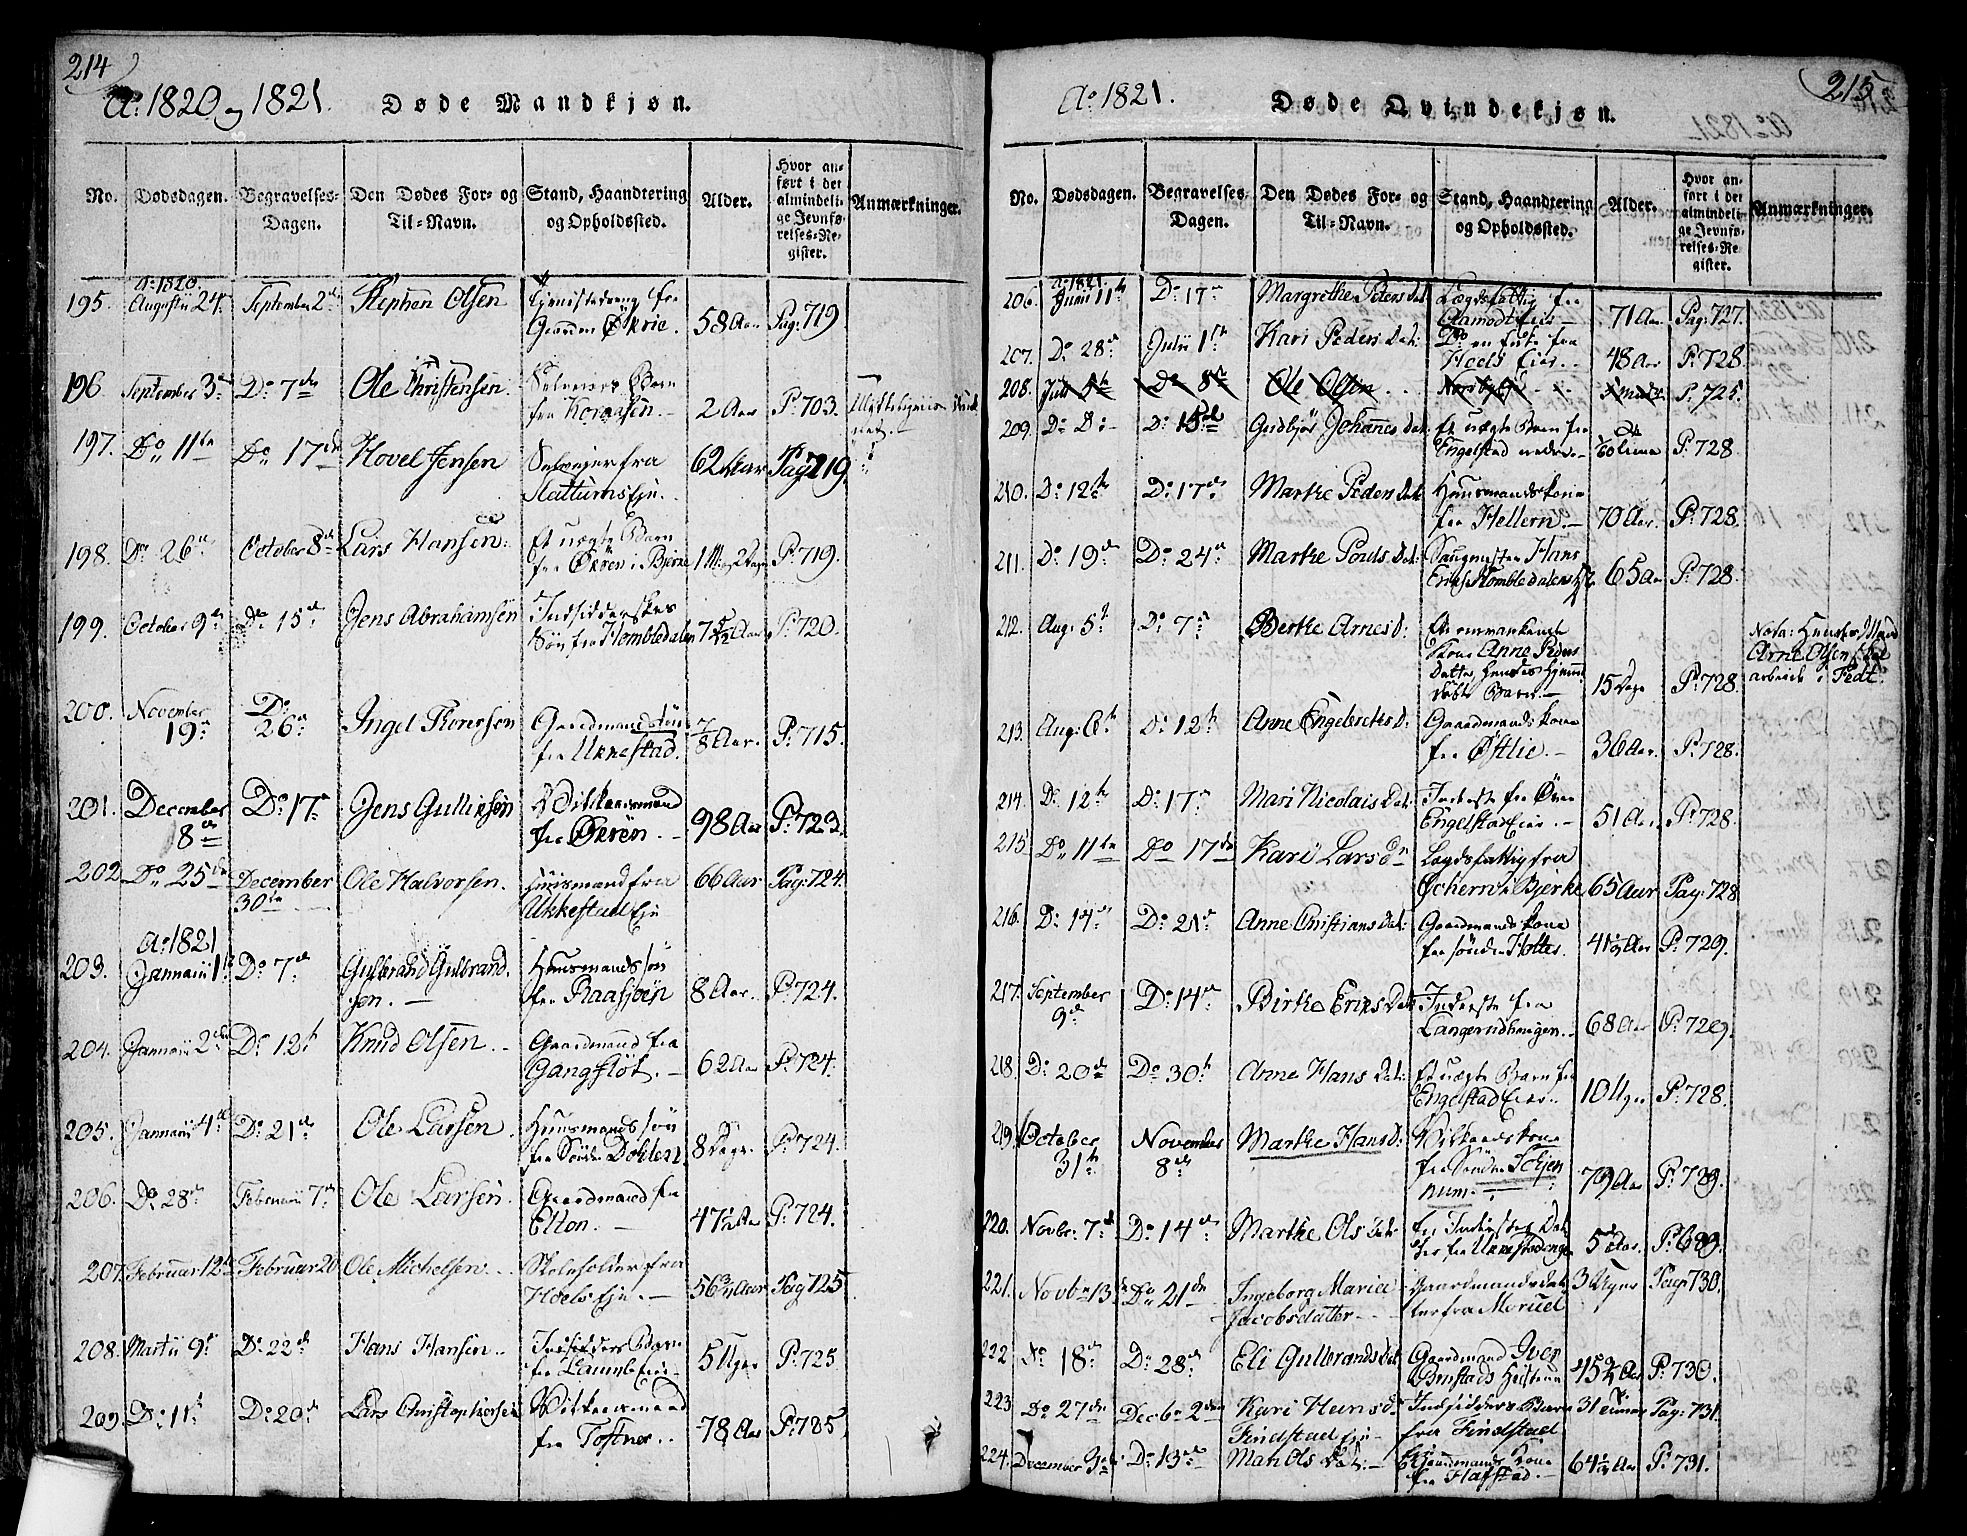 214
Ao 1820 og 1821. Døde Mandkjøn.
No. Dødsdagen. Begravelses-Dagen. Den Dødes For- og Til-Navn. Stand, Haandtering og Opholdssted. Alder. Hvor anført i det almindelige Jevnførelses-Register. Anmærkninger.
Ao 1820.
195. Augustii 24. September 2d Stephen Olsen fra 58 Aar Pag: 719
196. September 3d Do 7de Ole Christensen Selveiers Barn fra Korssen. 2 Aar P: 703.
197. Do 11te Do 17de Hovel Jensen Selveier fra Slattums Eje. 62 Aar Pag 719.
198. Do 26 October 8de Lars Hansen Et uægte Barn fra Økren i Bjerke 1 M: og 2 Dage P: 719.
199. October 9de Do 15d Jens Abrahamsen Søn fra Hombledalen P: 720.
200. November 19 Do 26 Ingel Gaardmands søn fra Ukkestad. 7/8 Aar. P: 715.
201. December 8de Do 17 Jens Gulliksøn Vilkaarsmand fra Økren. 98 Aar P: 723.
202 Do 25de December 30te Ole Halvorsen. Huusmand fra Ukkestad Eje 66 Aar Pag: 724.
Ao 1821
203. Januarii 1 Do 7de Gulbrand Gulbrandsen. Huusmands søn fra Raasjøen 8 Aar. P: 724.
204. Januarii 2den Do 12t Knud Olsen. Gaardmand fra Gangfløt. 62 Aar P: 724.
205. Januarii 4de Do 21de Ole Larsen Huusmands søn fra Søndre Dohlen 8 Dage. P: 724.
206. Do 28de Februarii 7de Ole Larsen. Gaardmand fra Elton. 47½ Aar P: 724.
207 Februar 12te Februar 20 Ole Michelsen Skoleholder fra Hoels Eje. 56¾ Aar Pag 725
208. Martii 9d Do 22de Hans Hansen Indsidders Barn fra Eie 5 Uger P: 725.
209. Do 11t Do 20de Lars Christophersen Vilkaarsmand fra Toftner. 78 Aar P: 725.
215
Ao 1821. Døde Qvindekjøn.
No. Dødsdagen. Begravelses-Dagen. Den Dødes For- og Til-Navn. Stand, Haandtering og Opholdssted. Alder. Hvor anført i det almindelige Jevnførelses-Register. Anmærkninger.
Ao 1821.
206. Junii 11te Do 17de Margrethe Peders Dat: Lægdsfattig fra Aamodt Eie 71 Aar Pag: 727.
207. Do 28de Julii 1ste Kari Peders Dat: Do en Enke fra Hoels Eier. 48 Aar P: 728
208. Julii 5te Do 8de Ole Olsen P. 725.
209. Do 8 Do 15de Gudbjør Johannes Dat: Et uægte Barn fra Engelstad nedre. P: 728
210. Do 12te Do 17de Marthe Peders Dat: Huusmands kone fra Hellern. 70 Aar. P: 728.
211. Do 19de Do 24de Marthe Pouls Dat: Hans Hombledalens 65 Aar P: 728.
212. Aug: 5t Do 7d Berthe Arnes D: Et omvankende Kone Anne Peders Datter hendes hjemmedøbt Barn. 15 Dage P: 728. Nota: Arne Olsen skal arbeide i Fedt.
213. Aug: 6te Do 12te Anne Engebrets D: Gaardmands kone fra Østlie. 36 Aar. P: 728.
214. Do 12te Do 17de Mari Nicolais Dat: Inderste fra Øvre Engelstad Eier. 51 Aar. P: 728.
215 Do 11te Do 17de Kari Lars D: Lægdsfattig fra Økern i Bjerke 65 Aar Pag: 728
216. Do 14de Do 21de Anne Christians Dat: Gaardmands kone fra søndre Holter. 41½ Aar P: 729.
217. September 9de Do 14de Birthe Eriks Dat: Inderste fra Langerudhaugen. 68 Aar P: 729.
218. Do 20de Do 30te Anne Hans Dat: Et uægte Barn fra Engelstad Eier. 10 Uger P: 728.
219. October 31te November 8de Marthe Hans D: Vilkaarskone fra Søndre Skjennum. 79 Aar P: 729.
220. Novbr: 7de Do 14de Marthe Ols Dat: Inderstes Datter fra Ukkestadenge 5 Aar. P: 689.
221. Novbr 13de Do 21de Ingeborg Marie Jacobsdatter Gaardmands datter fra Moruel 3 Uger Pag: 730.
222 Do 18de Do 28de Eli Gulbrands Dat: Gaardmand Iver Hustrue 45¾ Aar P: 730.
223 Do 27de Decbr 2den Kari Hans D: Findstad Eje Indsidders Barn fra Findstad Pag: 731.
224. December 3die Do 13de Mari Ols Dat: Gaardmands Kone fra Haffstad. 64½ Aar P: 731.